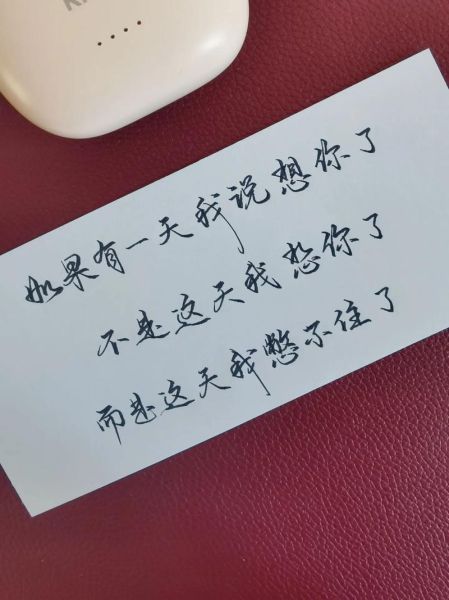 如果有一天我说想你了
不是这天我想你了
而是这天我憋不住了